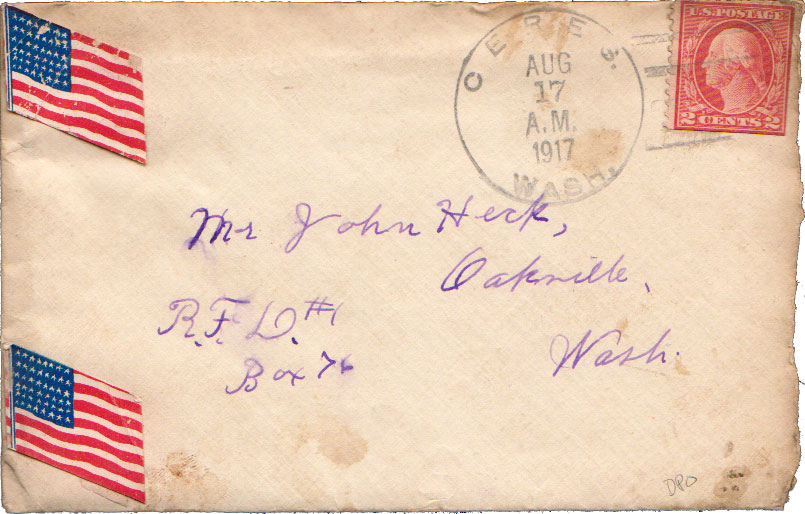 CERES.
AUG
17
A.M.
1917
WASH.
U.S. POSTAGE
2 CENTS 2
Mr John Heck,
Oakville,
R.F.D. #1
Wash.
Box 76
DPO